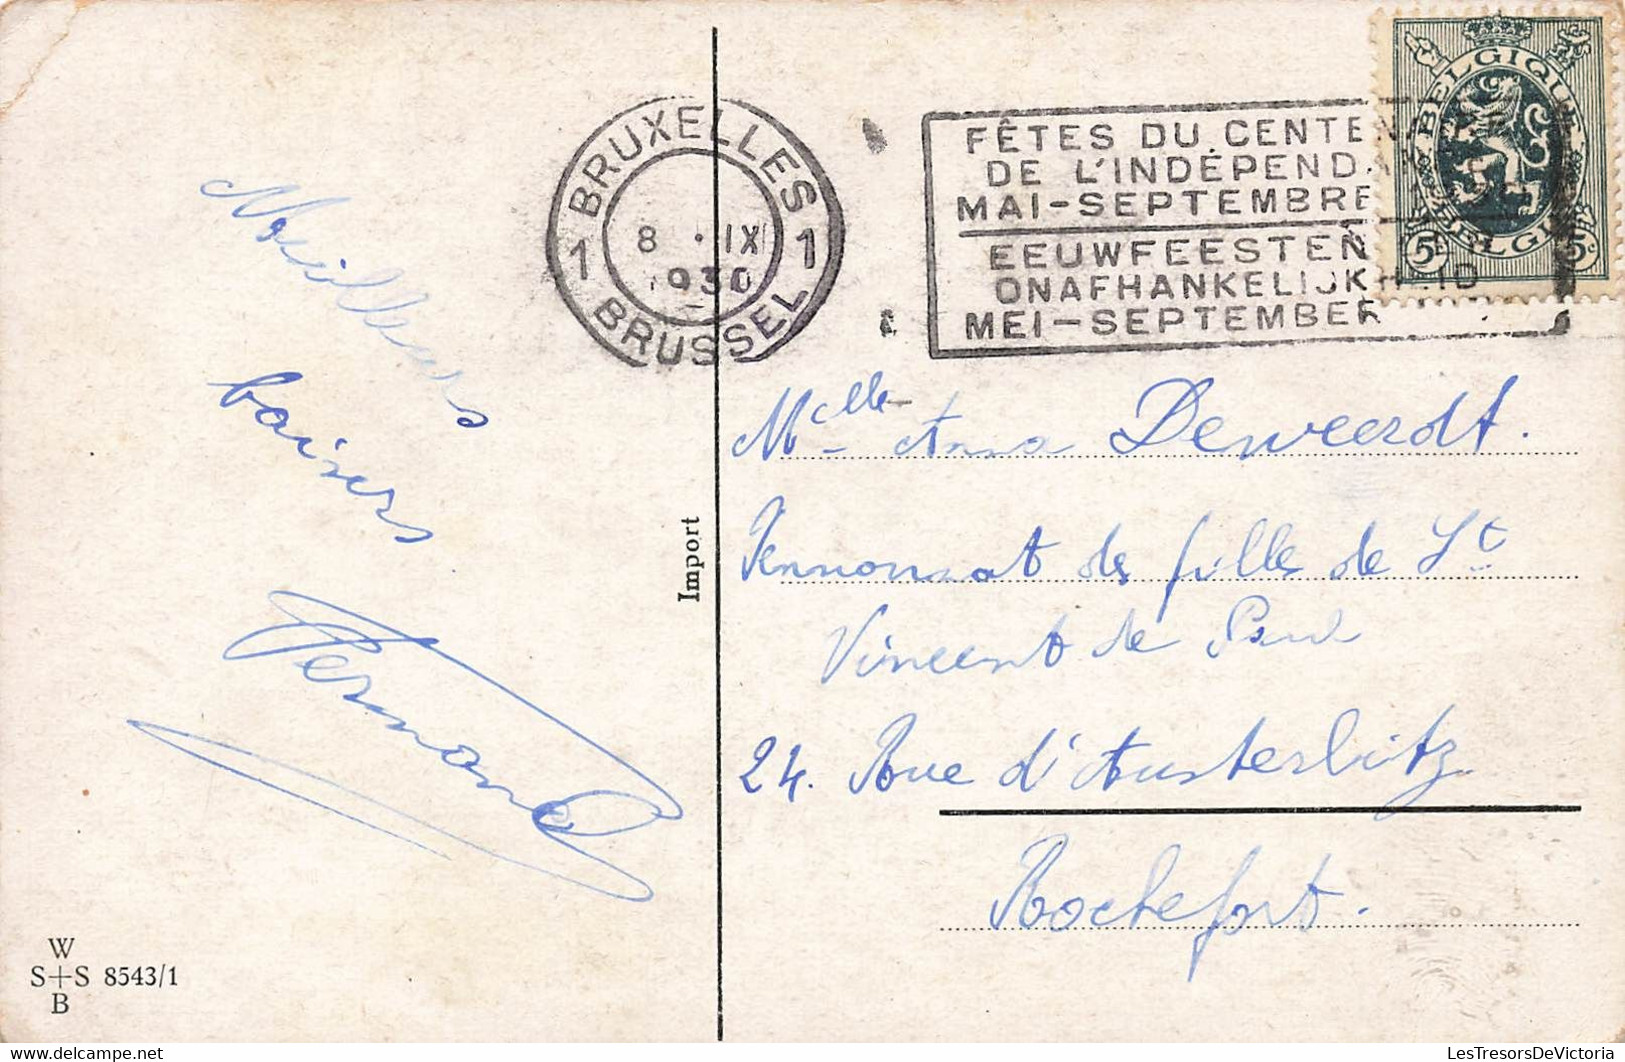 Meilleurs
baisers
Fernand
W
S+S 8543/1
B
Import
BRUXELLES
1 8 · IX 1
1930
BRUSSEL
FÊTES DU CENTE
DE L'INDÉPEND
MAI-SEPTEMBRE
EEUWFEESTEN
ONAFHANKELIJKHEID
MEI-SEPTEMBER
BELGIQUE
BELGIË
5c 5c
Mclle Anna Deweerdt.
Pennonnat de filles de St
Vincent de Paul
24. Rue d'Austerlitz
Rochefort.
© LesTresorsDeVictoria
LesTresorsDeVictoria.com